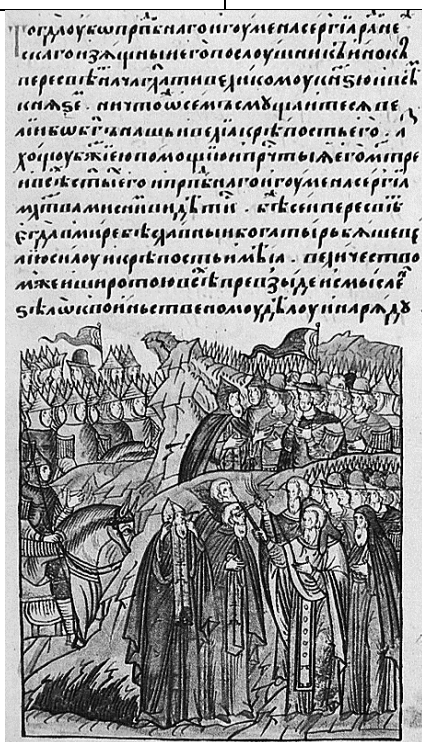 Тогда оубѡ прпⷣбнаго игоумена сергїа радоне
скаго изѧщныи его послоушникъ инокъ
пересвѣⷮ нача гл҃ати великомоу кнѕю и всѣⷨ
кнѧзеⷨ . ничтоже ѡ семъ смꙋщаитесѧ ве
лїи бѡ бг҃ъ нашь и велїа крѣпость его . аⷥ
хощоу бж҃їею помощїю и прчⷭтыѧ его мт҃ре
и всѣⷯ ст҃ыⷯ его и прпⷣбнаго игоумена сергїа
млт҃вами с ниⷨ видѣтисѧ . бѣ же сеи пересвѣⷮ
егда в мире бѣ славныи богатырь бѧше ве
лїю силоу и крѣпость имѣа . величество
мже и широтою всѣⷯ превзыде и смысле
ѕѣлѡ к воиньственомоу дѣлоу и нарѧдꙋ